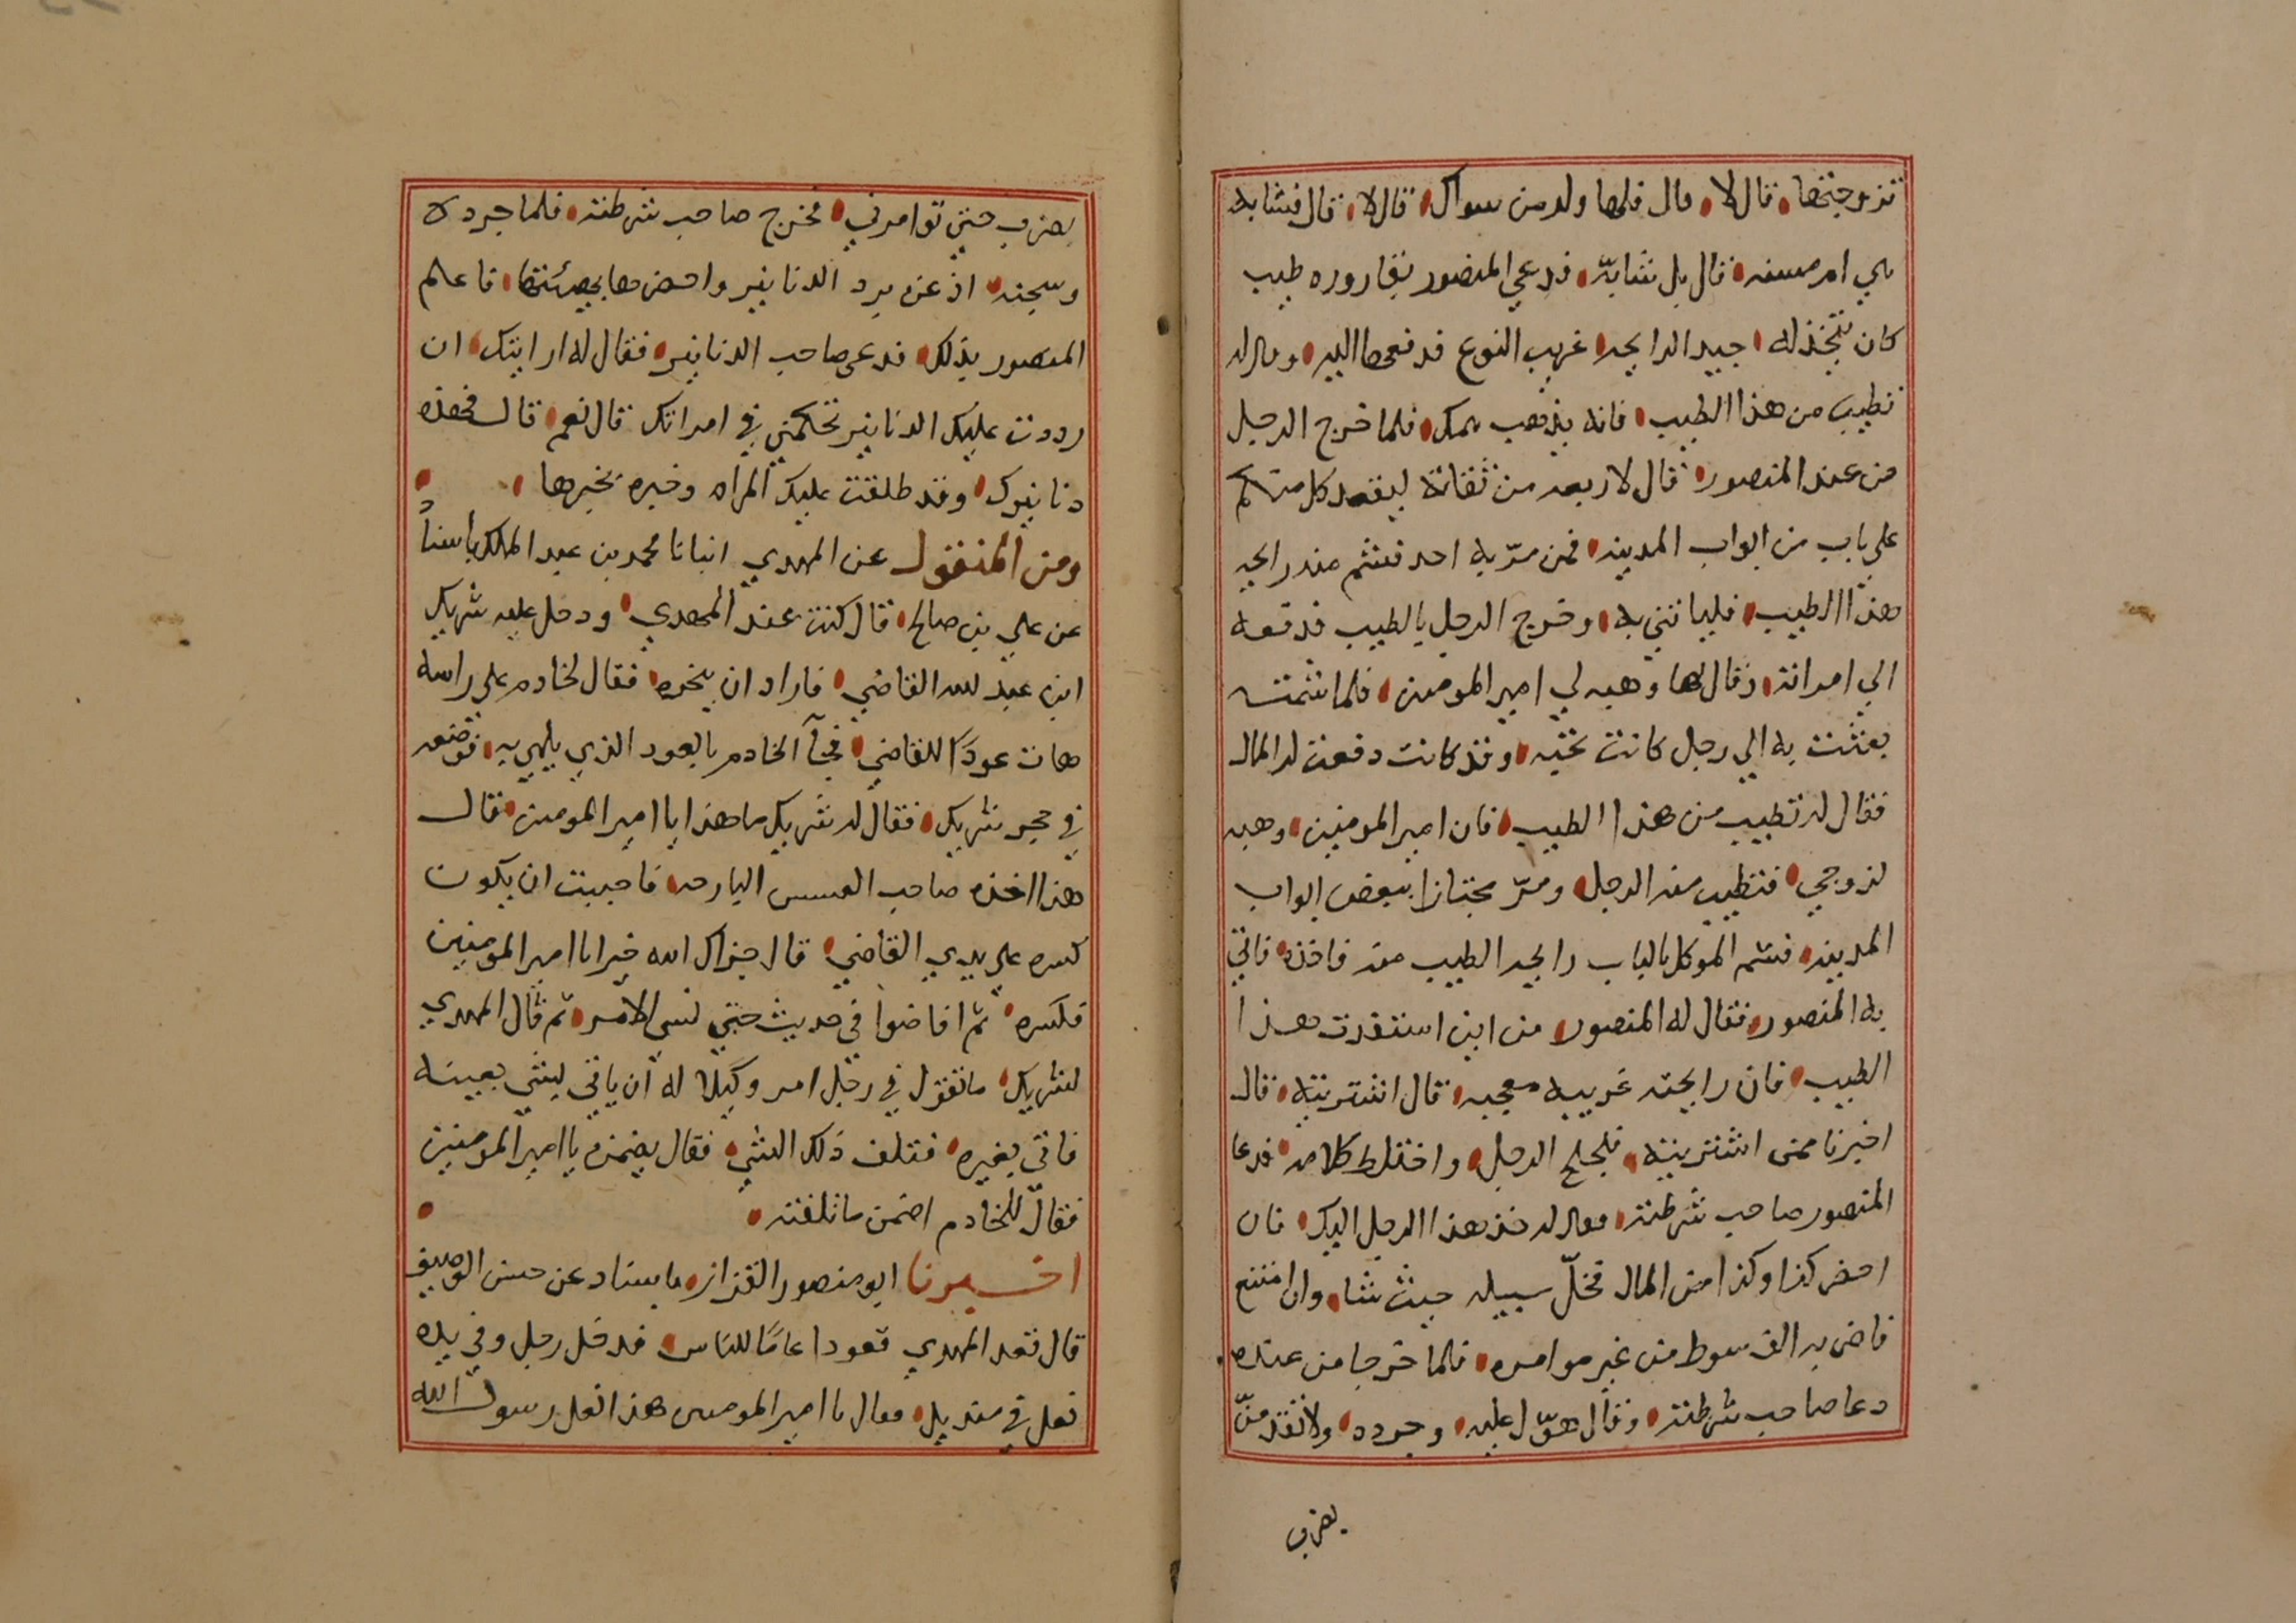 تزوجتها قال لا قال فلها ولد من سواك قال لا قال فشابه
هي ام مسنه قال بل شابة فدعي المنصور بقاروره طيب
كان تتخذ له جيد الرايحه غريب النوع فدفعها اليه وقال له
تطيب من هذا الطيب فانه يذهب همك فلما خرج الرجل
من عند المنصور قال لاربعه من ثقاته ليقعد كل منكم
علي باب من ابواب المدينه فمن مرّ به احد فشم منه رايحه
هذا الطيب فلياتني به وخرج الرجل بالطيب فدفعه
الي امراته وقال لها وهبه لي امير المومنين فلما شمته
بعثت به الي رجل كانت تحبه وقد كانت دفعت له المال
فقال له تطيب من هذا الطيب فان امير المومنين وهبه
لزوجي فتطيب منه الرجل ومرّ مجتازا ببعض ابواب
المدينه فشم الموكل بالباب رايحه الطيب منه فاخذه فاتي
به المنصور فقال له المنصور من اين استفدت هذا
الطيب فان رايحته غريبه معجبه قال اشتريته قال
اخبرنا ممن اشتريته فلجلج الرجل واختلط كلامه فدعا
المنصور صاحب شرطته فقال له خذ هذا الرجل اليك فان
احضر كذا وكذا من المال فخلّ سبيله حيث شا وان امتنع
فاضربه الف سوط من غير موامره فلما خرجا من عنده
دعا صاحب شرطته وقال هوّل عليه وجرده ولا تقدمنّ
يضرب
بضرب حتي توامرني فخرج صاحب شرطته فلما جرده
وسجنه اذعن برد الدنانير واحضرها بهيئتها فاعلم
المنصور بذلك فدعي صاحب الدنانير فقال له ارايتك ان
رددت عليك الدنانير تحكمني في امراتك قال نعم قال فهذه
دنانيرك وقد طلقت عليك المراه وخبره بخبرها
ومن المنقول عن المهدي انبانا محمد بن عبد الملك باسناد
عن علي بن صالح قال كنت عند المهدي ودخل عليه شريك
ابن عبد لله القاضي فاراد ان يبخره فقال لخادم علي راسه
هات عودًا للقاضي فجآ الخادم بالعود الذي يلهي به فوضعه
في حجر شريك فقال له شريك ما هذا يا امير المومنين قال
هذا اخذه صاحب العسس البارحه فاحببت ان يكون
كسره علي يدي القاضي قال جزاك الله خيرا يا امير المومنين
فكسره ثم افاضوا في حديث حتي نسي الامر ثم قال المهدي
لشريك ما تقول في رجل امر وكيلا له ان ياتي لشي بعينه
فاتي بغيره فتلف ذلك الشي فقال يضمن يا امير المومنين
فقال للخادم اضمن ما تلفته
اخبرنا ابو منصور القزاز باسناد عن حسن الوصيف
قال قعد المهدي قعودا عامًا للناس فدخل رجل وفي يده
نعل في منديل فقال يا امير المومنين هذا نعل رسول الله